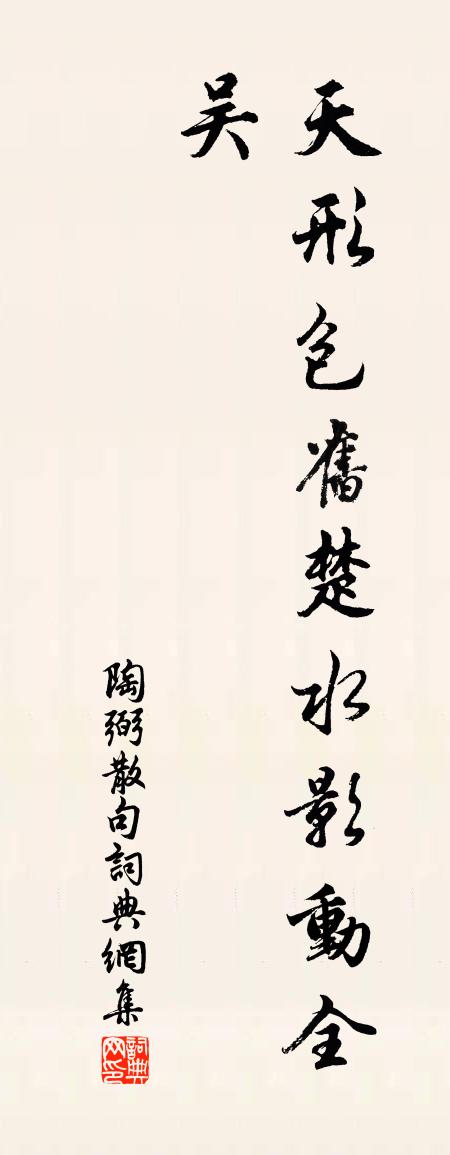 天形包舊楚水影動全
吴
陶弼散句詞典網集
詞典网印